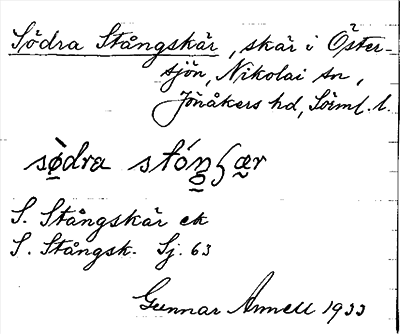 Södra Stångskär, skär i Öster-
sjön, Nikolai sn,
Jönåkers hd, Sörml. l.
sø̀dra stóŋʃær
S. Stångskär ek
S. Stångsk. Sj. 63
Gunnar Annell 1933